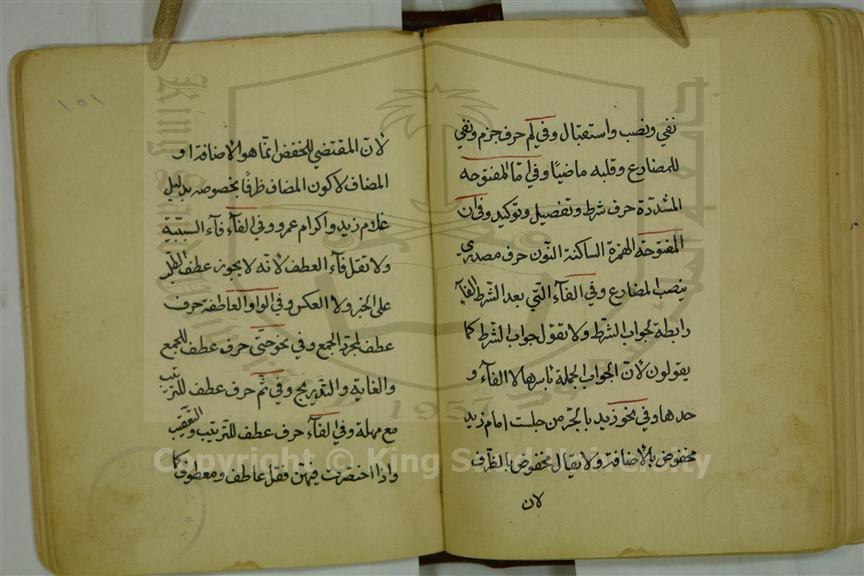 نفي ونصب واستقبال وفي لم حرف جزم ونفي
للمضارع وقلبه ماضيا وفي اما المفتوحه
المشددة حرف شرط وتفصيل وتوكيد وفي ان
المفتوحة الهمزة الساكنة النون حرف مصدري
ينصب المضارع وفي الفآء التي بعد الشرط الفآء
رابطة لجواب الشرط ولا تقول جواب الشرط كما
يقولون لان الجواب الجملة باسرها لا الفآء و
حدها وفي نحو زيد بالجر من جلست امام زيد
مخفوض بالاضافة ولا يقال مخفوض بالظرف
لان
١٥١
لان المقتضي للخفض انما هو الاضافة او
المضاف لا كون المضاف ظرفا بخصوصه بدليل
غلام زيد واكرام عمرو وفي الفآء فآء السببية
ولا تقل فآء العطف لانه لا يجوز عطف الطلب
على الخبر ولا العكس وفي الواو العاطفة حرف
عطف لمجرد الجمع وفي نحو حتى حرف عطف للجمع
والغاية والتدريج وفي ثم حرف عطف للترتيب
مع مهلة وفي الفآء حرف عطف للترتيب والتعقيب
واذا اختصرت فيهن فقل عاطف ومعطوف كما
King Saud University
1957
Copyright © King Saud University